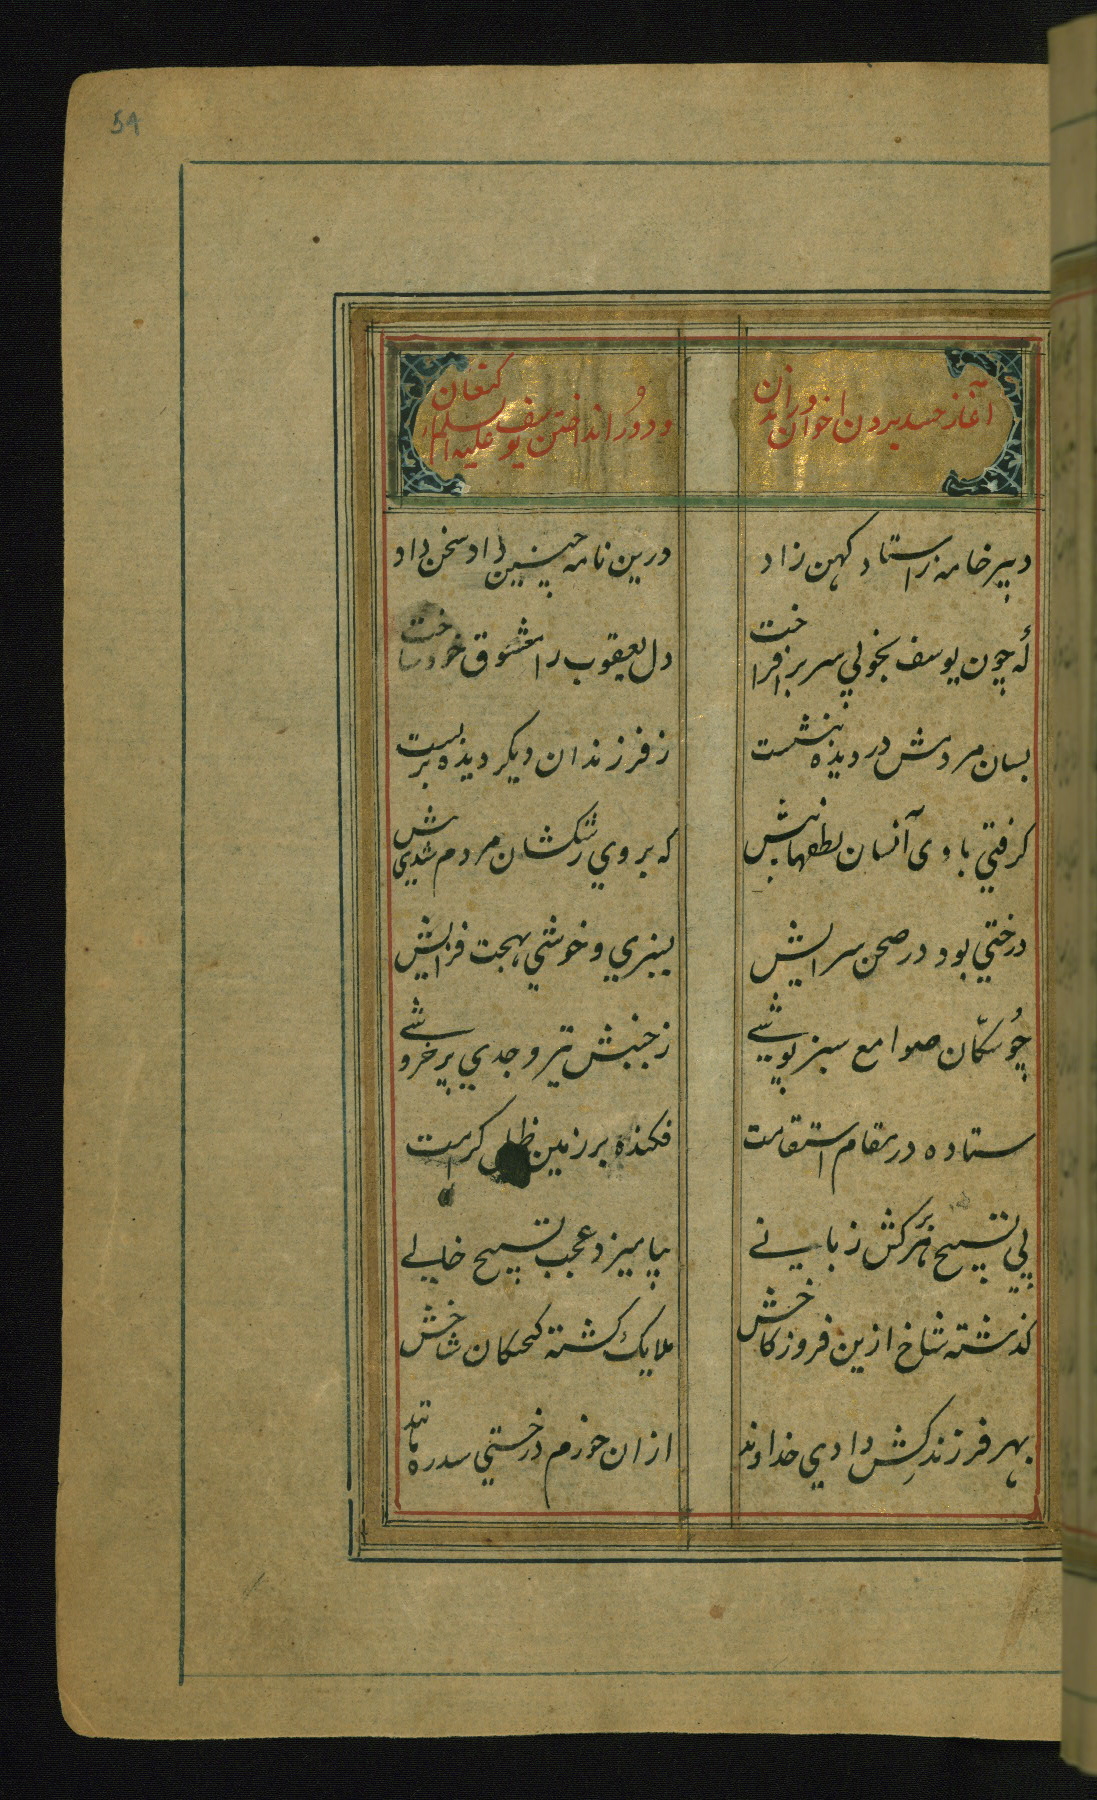 54
آغاز حسد بردن اخوان
و دور انداختن یوسف علیه السلام کنعان
دبیر خامه ز استاد کهن زاد
درین نامه چنین داد سخن داد
که چون یوسف بخوبی سر بر افراخت
دل یعقوب را معشوق خود ساخت
بسان مردمش در دیده بنشست
ز فرزندان دیگر دیده بربست
گرفتی با وی آنسان لطفهاپیش
که بر وی رشکشان هر دم شدی بیش
درختی بود در صحن سرایش
بسبزی و خوشی بهجت فزایش
چو سکّان صوامع سبز پوشی
ز جنبش تیز وجدی پر خروشی
ستاده در مقام استقامت
فکنده بر زمین ظل کرامت
پی تسبیح هر برگش زبانی
بنامیزد عجب تسبیح خانی
گذشته شاخ ازین فیروزه کاخش
ملایک گشته گنجشکان شاخش
بهر فرزند کش دادی خداوند
ازان خورم درختی سدره مانند